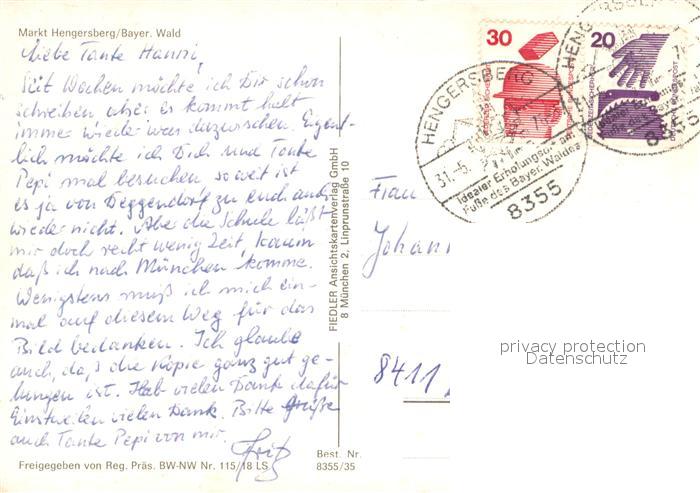 Markt Hengersberg/Bayer. Wald
Liebe Tante Hanni,
Seit Wochen möchte ich Dir schon
schreiben aber es kommt halt
immer wieder was dazwischen. Eigent-
lich möchte ich Dich und Tante
Pepi mal besuchen, so weit ist
es ja von Deggendorf zu euch auch
wieder nicht. Aber die Schule läßt
mir doch recht wenig Zeit, kaum
daß ich nach München komme.
Wenigstens muß ich mich ein-
mal auf diesem Weg für das
Bild bedanken. Ich glaube
auch, daß die Kopie ganz gut ge-
lungen ist. Hab vielen Dank dafür
Einstweilen vielen Dank. Bitte Grüße
auch Tante Pepi von mir.
Fritz
Freigegeben von Reg. Präs. BW-NW Nr. 115/18 LS
Best. Nr.
8355/35
FIEDLER Ansichtskartenverlag GmbH
8 München 2, Linprunstraße 10
30
20
HENGERSBERG
31.-5.
Idealer Erholungsort am
Fuße des Bayer. Waldes
8355
HENGERSBERG
8355
Frau
Johann
8411
privacy protection
Datenschutz